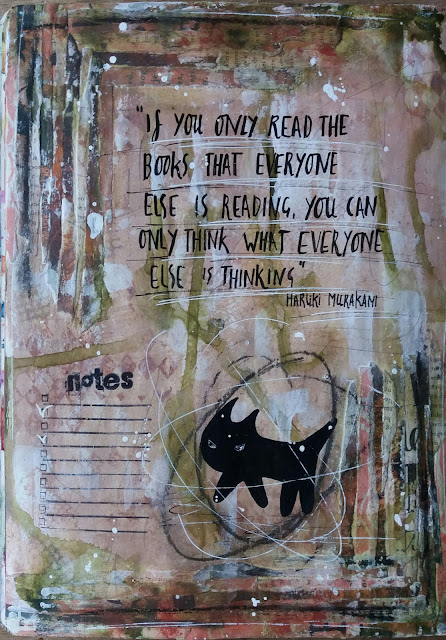 "If YOU ONLY READ THE
BOOKS THAT EVERYONE
ELSE IS READING, YOU CAN
ONLY THINK WHAT EVERYONE
ELSE IS THINKING"
HARUKI MURAKAMI
notes